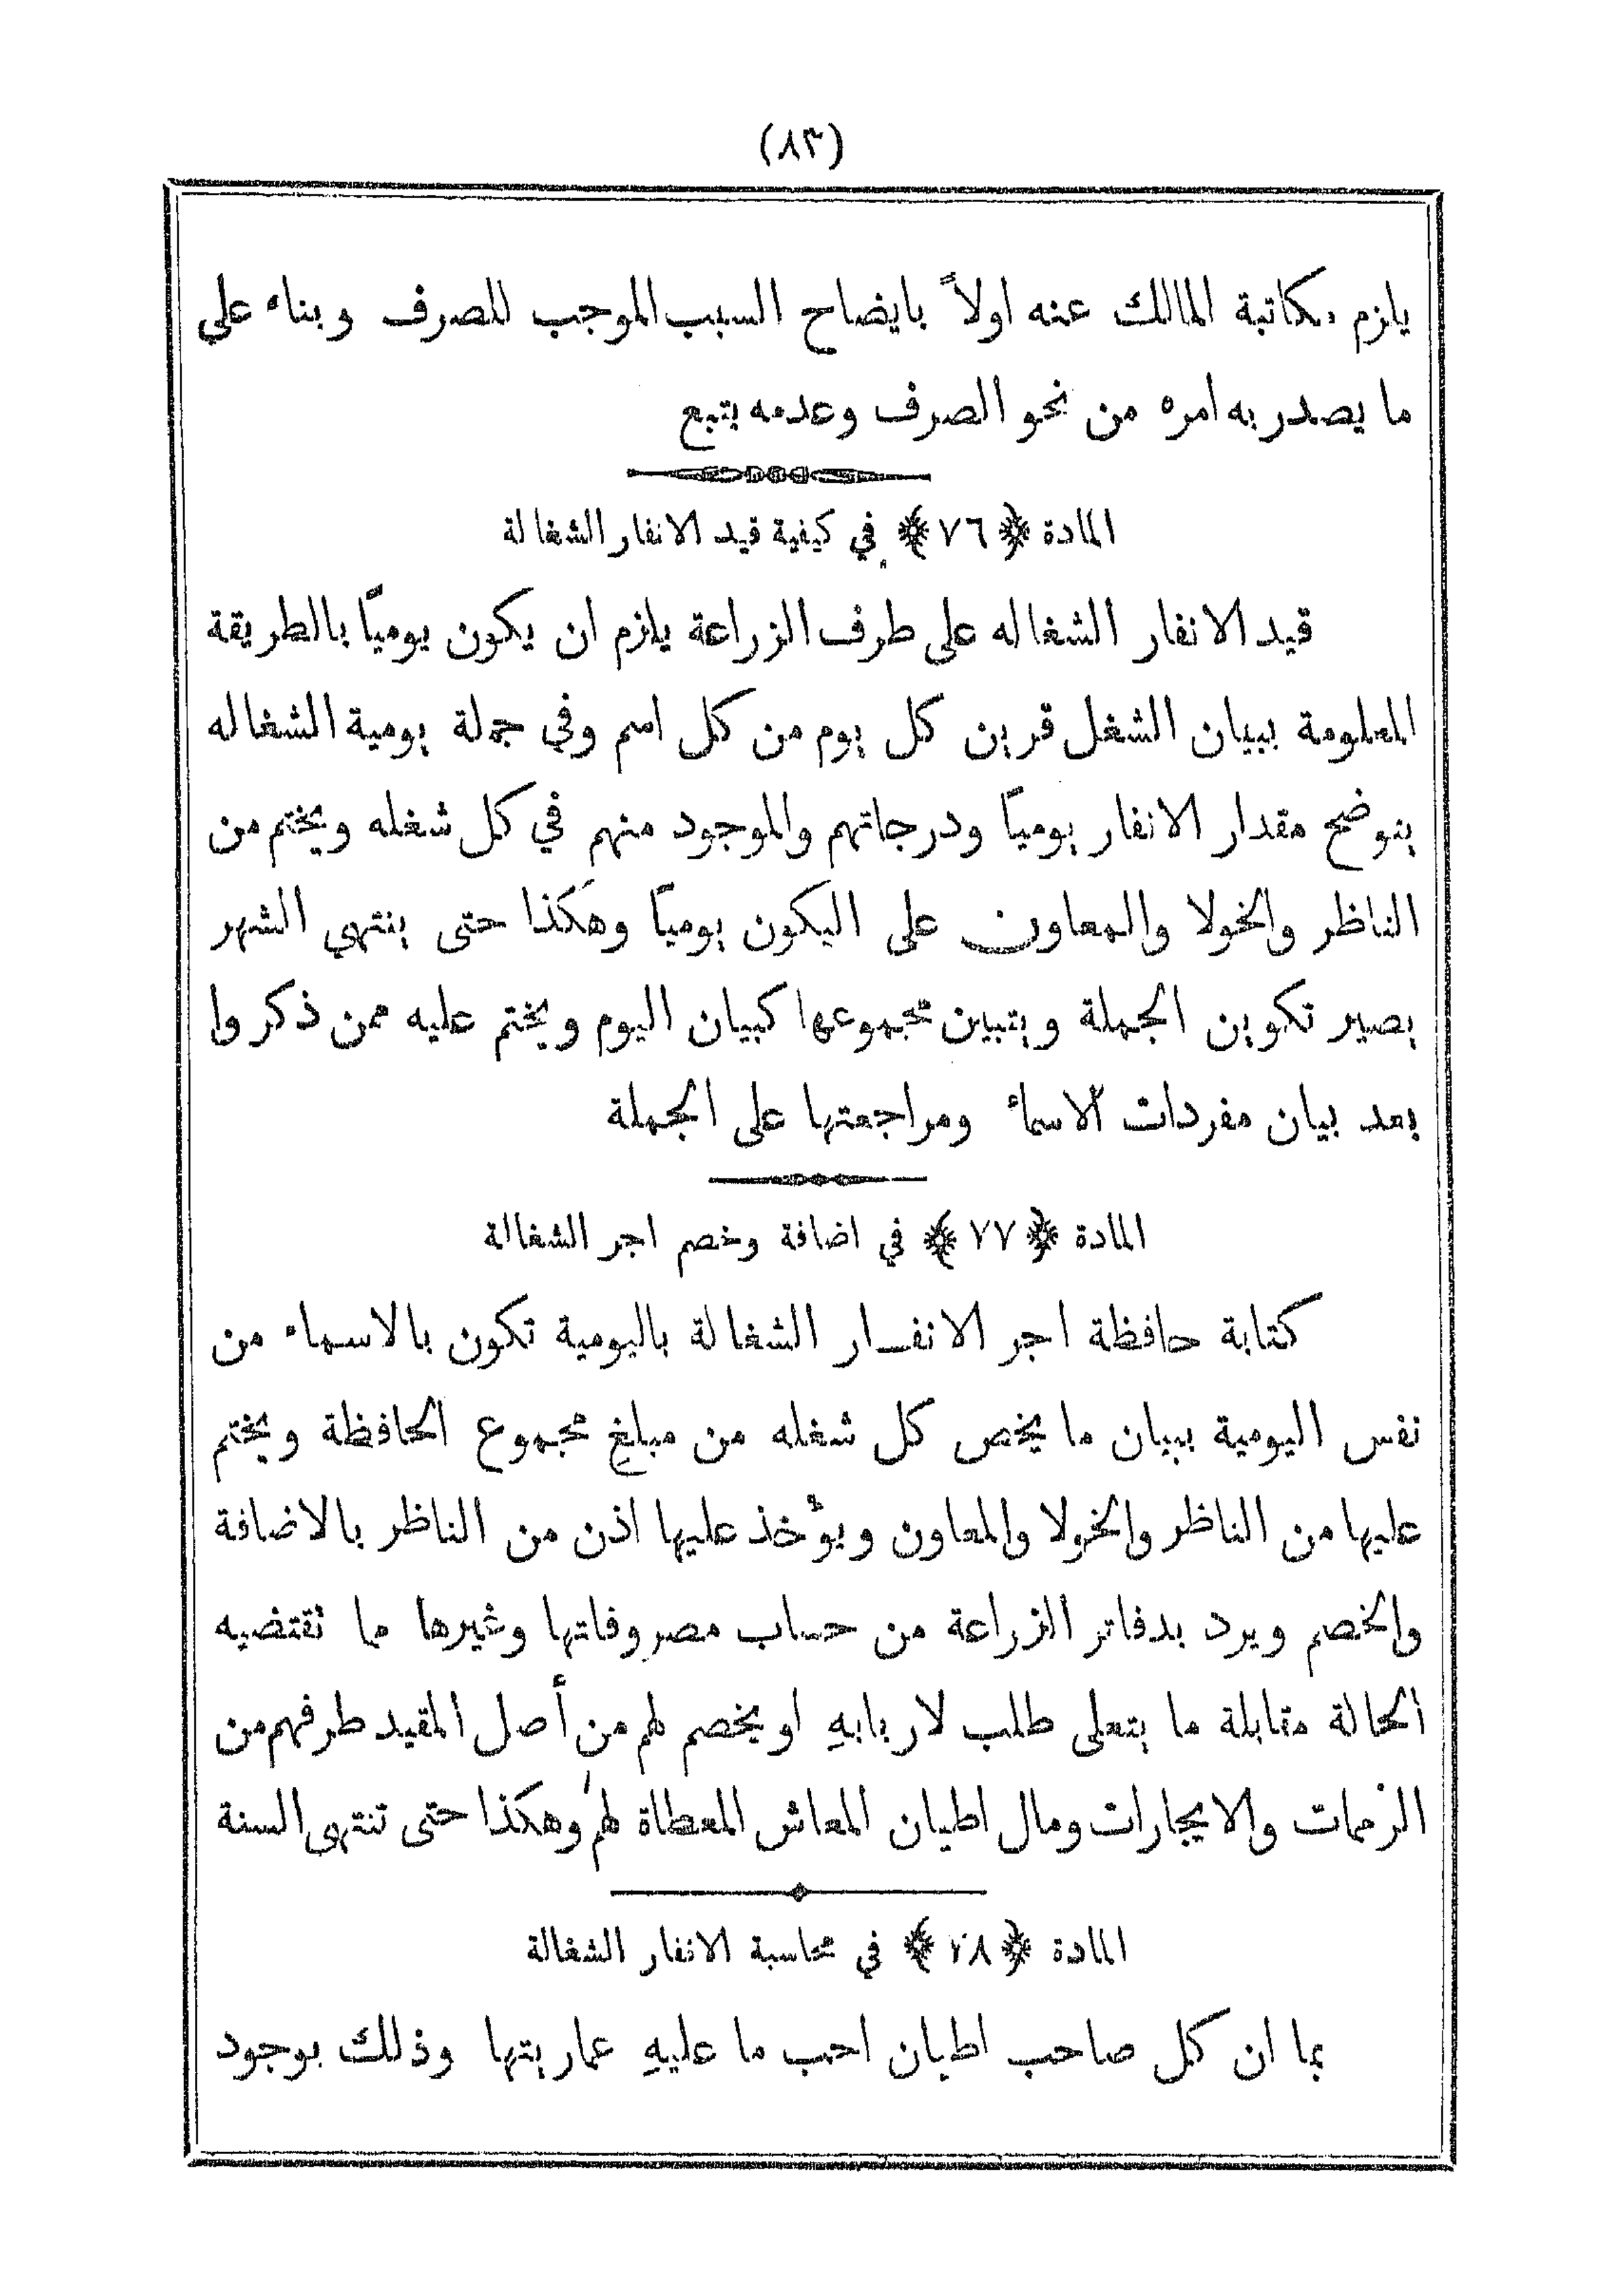 (٨٣)
يلزم مكاتبة المالك عنه اولاً بايضاح السبب الموجب للصرف وبناء على
ما يصدر به امره من نحو الصرف وعدمه يتبع
المادة ﴿٧٦﴾ في كيفية قيد الانفار الشغالة
قيد الانفار الشغاله على طرف الزراعة يلزم ان يكون يومياً بالطريقة
المعلومة ببيان الشغل قرين كل يوم من كل اسم وفي جملة يومية الشغاله
يتوضح مقدار الانفار يومياً ودرجاتهم والموجود منهم في كل شغله ويختم من
الناظر والخولا والمعاون على اليكون يومياً وهكذا حتى ينتهي الشهر
يصير تكوين الجملة ويتبين مجموعها كبيان اليوم ويختم عليه ممن ذكروا
بعد بيان مفردات الاسماء ومراجعتها على الجملة
المادة ﴿٧٧﴾ في اضافة وخصم اجر الشغالة
كتابة حافظة اجر الانفار الشغالة باليومية تكون بالاسماء من
نفس اليومية ببيان ما يخص كل شغله من مبلغ مجموع الحافظة ويختم
عليها من الناظر والخولا والمعاون ويؤخذ عليها اذن من الناظر بالاضافة
والخصم ويرد بدفاتر الزراعة من حساب مصروفاتها وغيرها مما تقتضيه
الحالة مقابلة ما يتعلى طلب لاربابهِ او يخصم لهم من أصل المقيد طرفهم من
الزممات والايجارات ومال اطيان المعاش المعطاة لهم وهكذا حتى تنتهى السنة
المادة ﴿٧٨﴾ في محاسبة الانفار الشغالة
بما ان كل صاحب اطيان احب ما عليهِ عماريتها وذلك بوجود